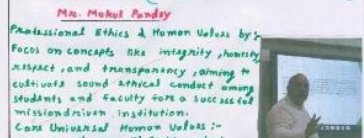 Mr. Mukul Pandey
Professional Ethics & Human Values by:-
Focus on concepts like integrity, honesty
respect, and transparency, aiming to
cultivate sound ethical conduct among
students and faculty for a successful
mission driven institution.
Core Universal Human Values :-